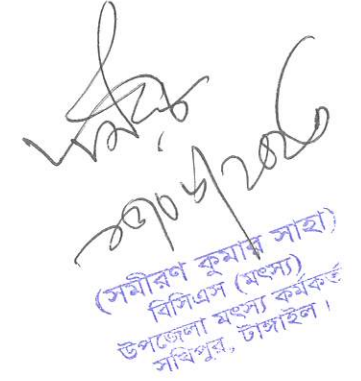 সমীরণ
(সমীরণ কুমার সাহা)
বিসিএস (মৎস্য)
উপজেলা মৎস্য কর্মকর্তা
সখিপুর, টাঙ্গাইল।